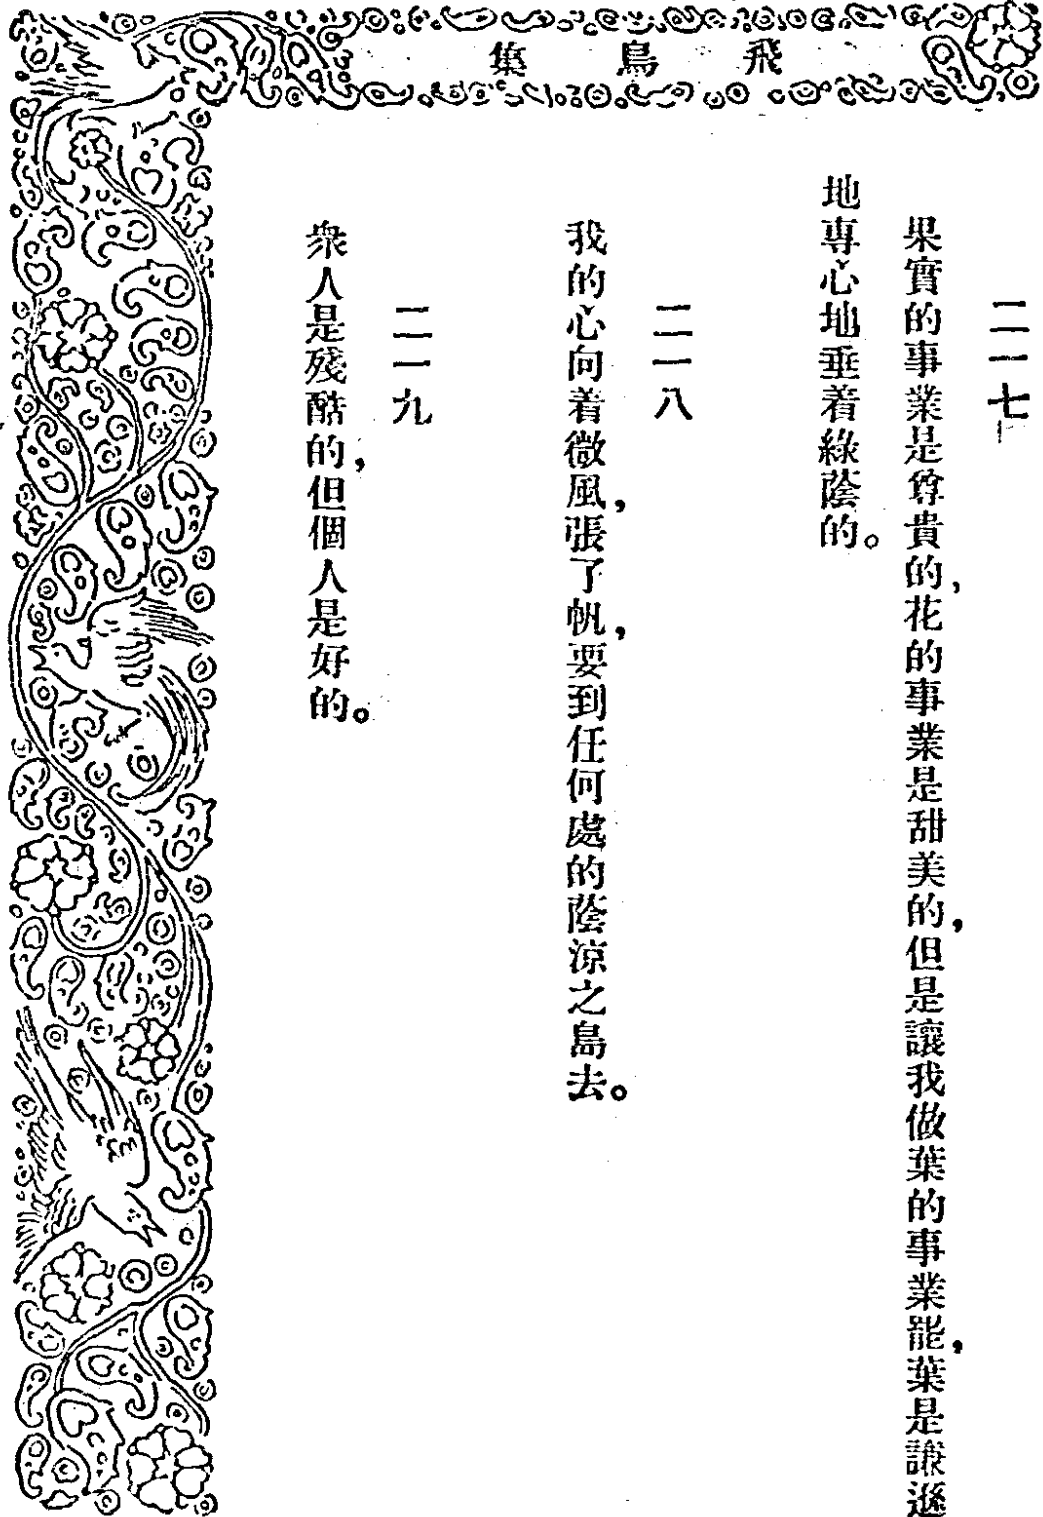 飛鳥集
二一七
果實的事業是尊貴的，花的事業是甜美的，但是讓我做葉的事業罷，葉是謙遜
地專心地垂着綠蔭的。
二一八
我的心向着微風，張了帆，要到任何處的蔭涼之島去。
二一九
衆人是殘酷的，但個人是好的。